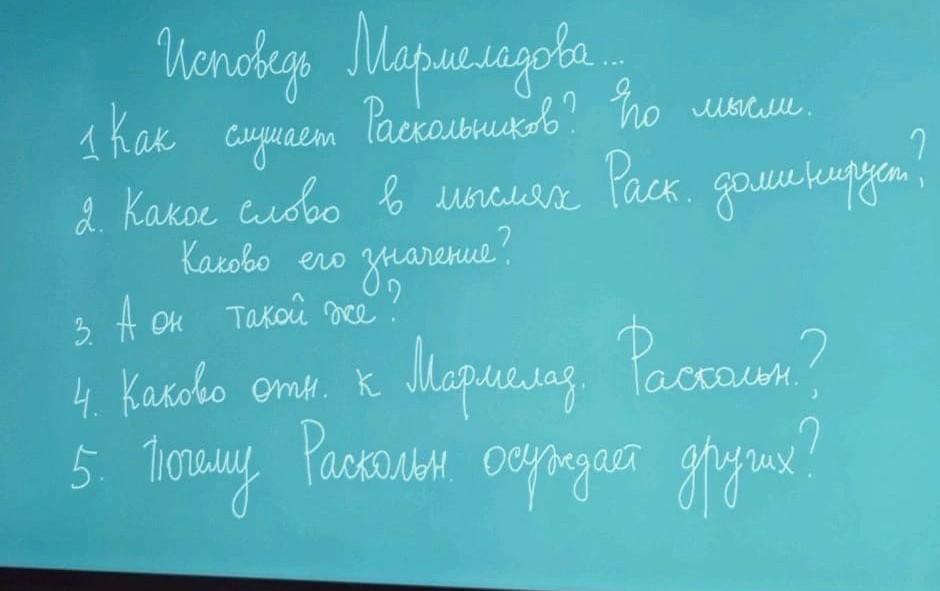 Исповедь Мармеладова...
1 Как слушает Раскольников? Его мысли.
2. Какое слово в мыслях Раск. доминирует?
Каково его значение?
3. А он такой же?
4. Каково отн. к Мармелад. Раскольн.?
5. Почему Раскольн. осуждает других?